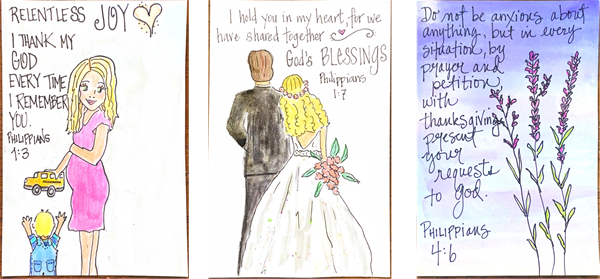 RELENTLESS JOY
I THANK MY
GOD
EVERY TIME
I REMEMBER
YOU.
PHILIPPIANS
1:3
I hold you in my heart, for we
have shared together
God's BLESSINGS
Philippians
1:7
Do not be anxious about
anything, but in every
situation, by
prayer and
petition
with
thanksgiving
present
your
requests
to God.
PHILIPPIANS
4:6